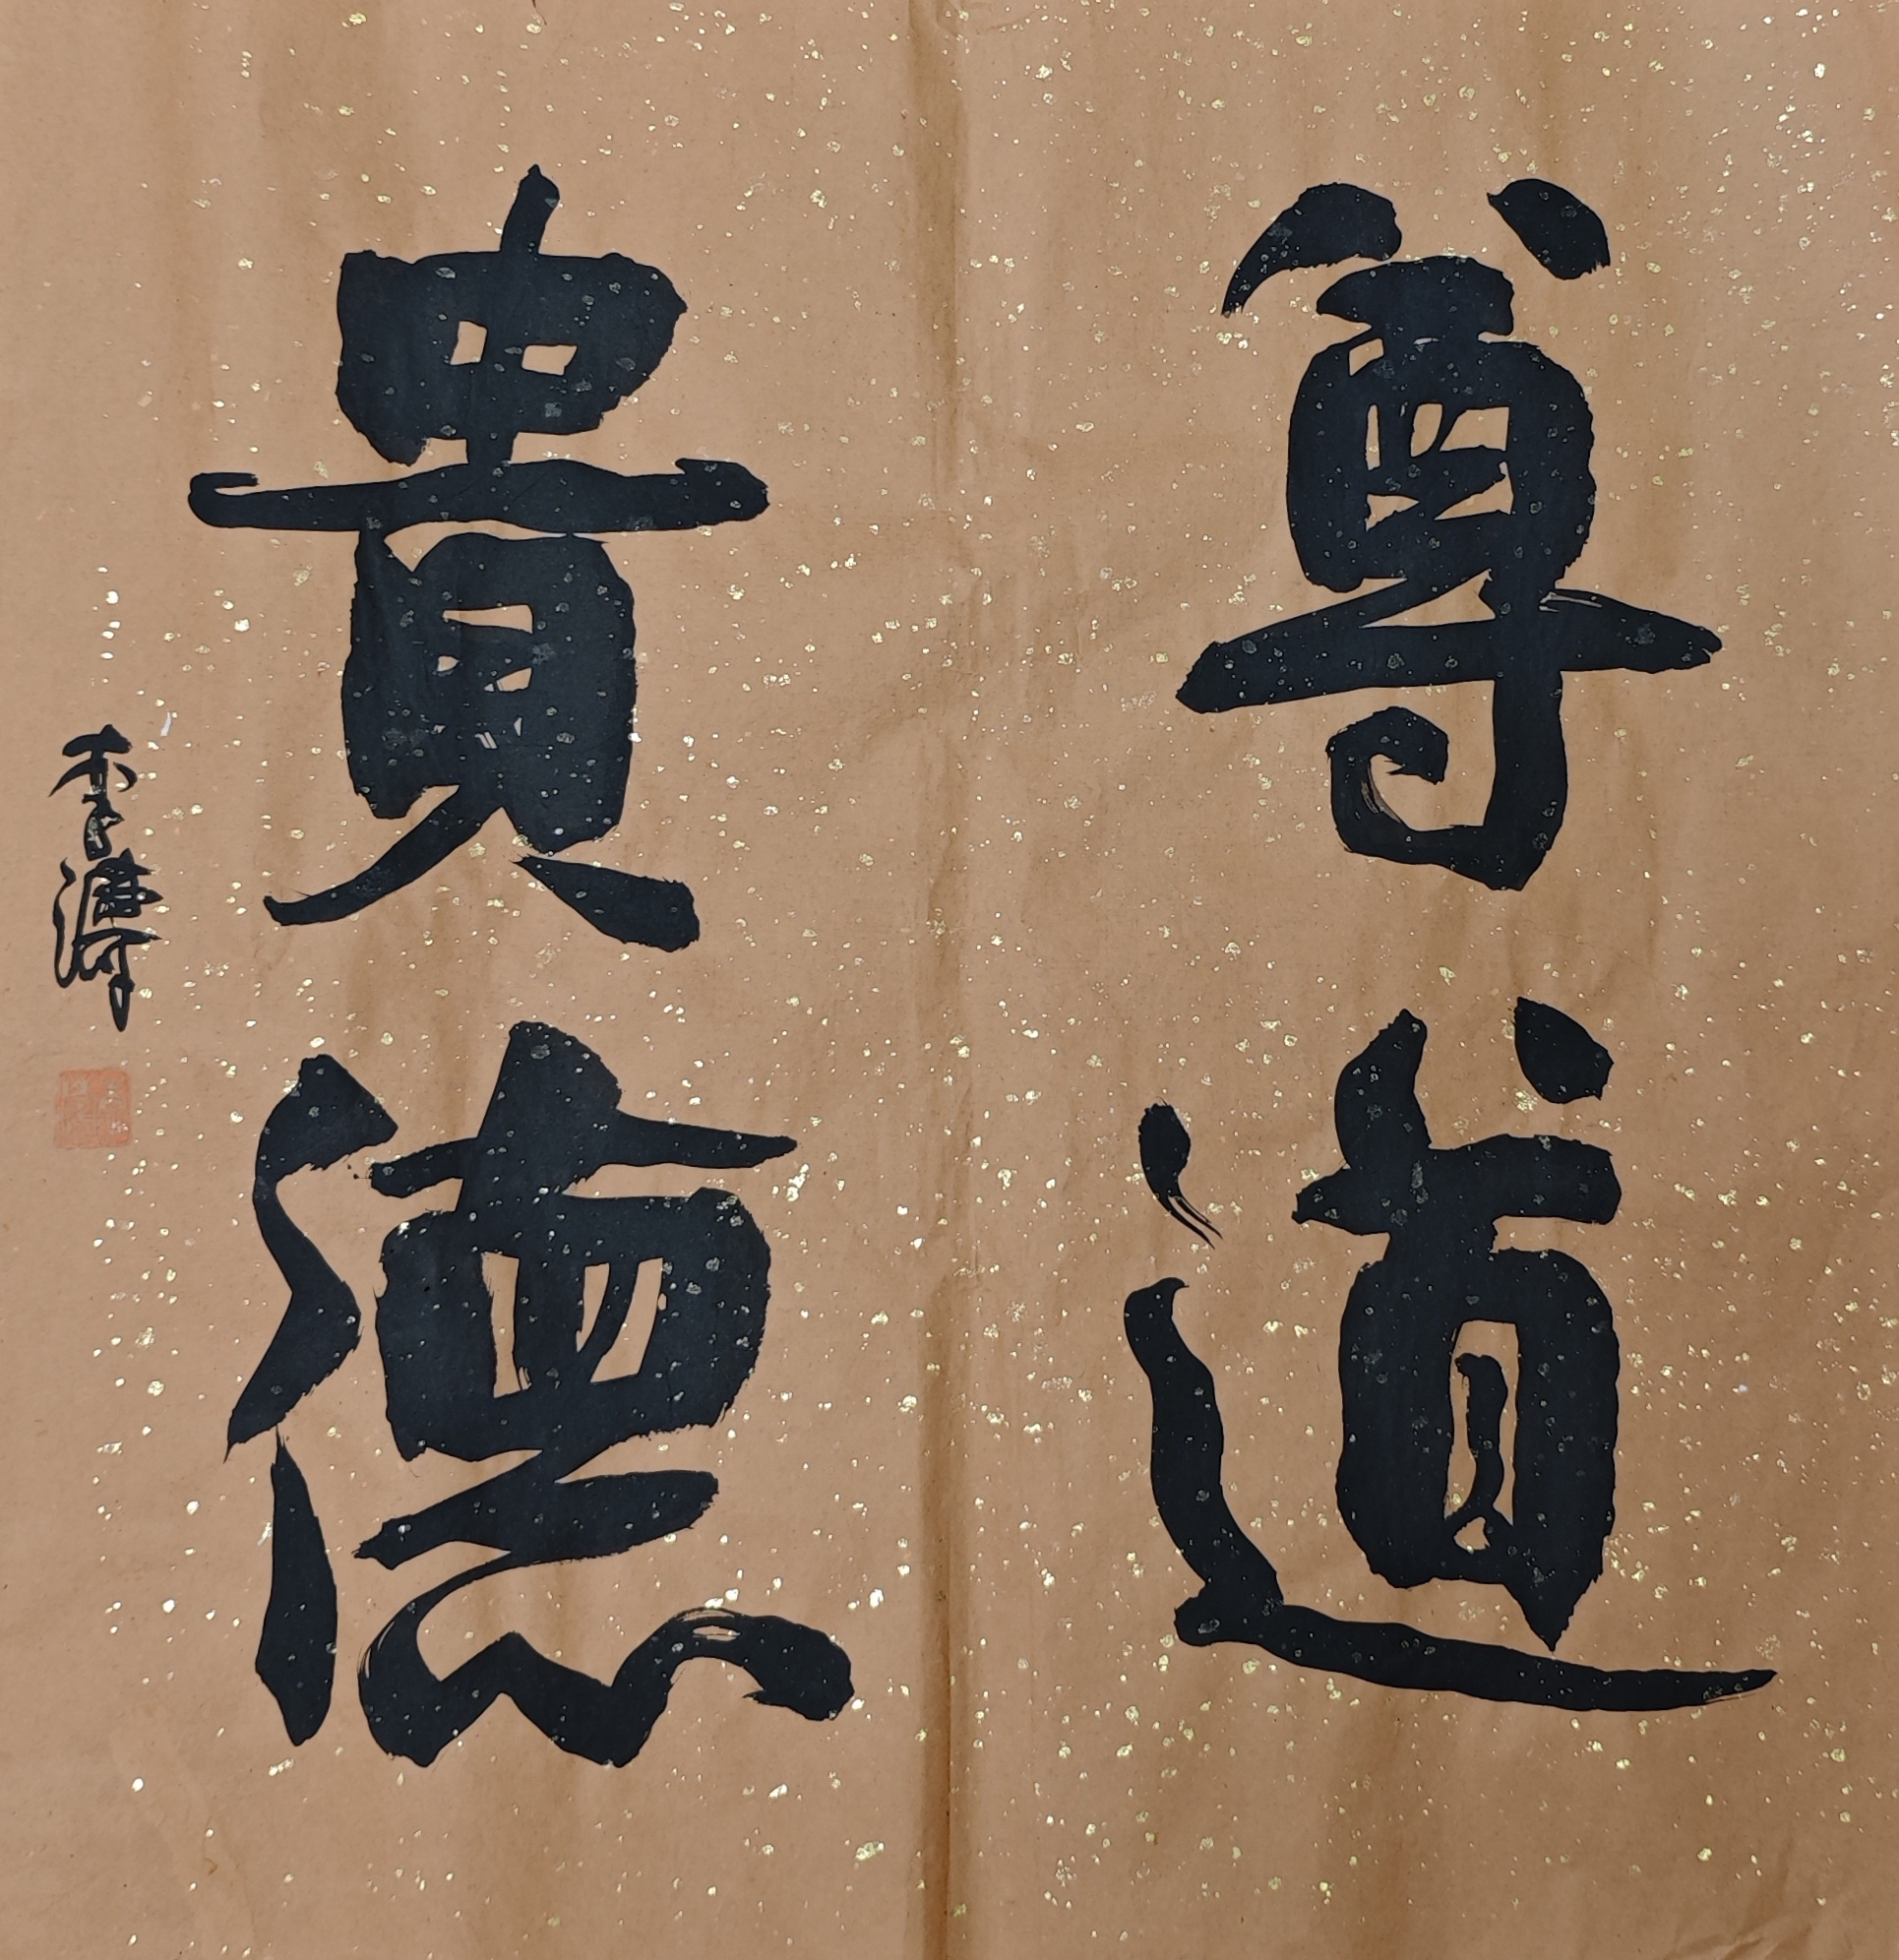 尊道
貴德
李濤